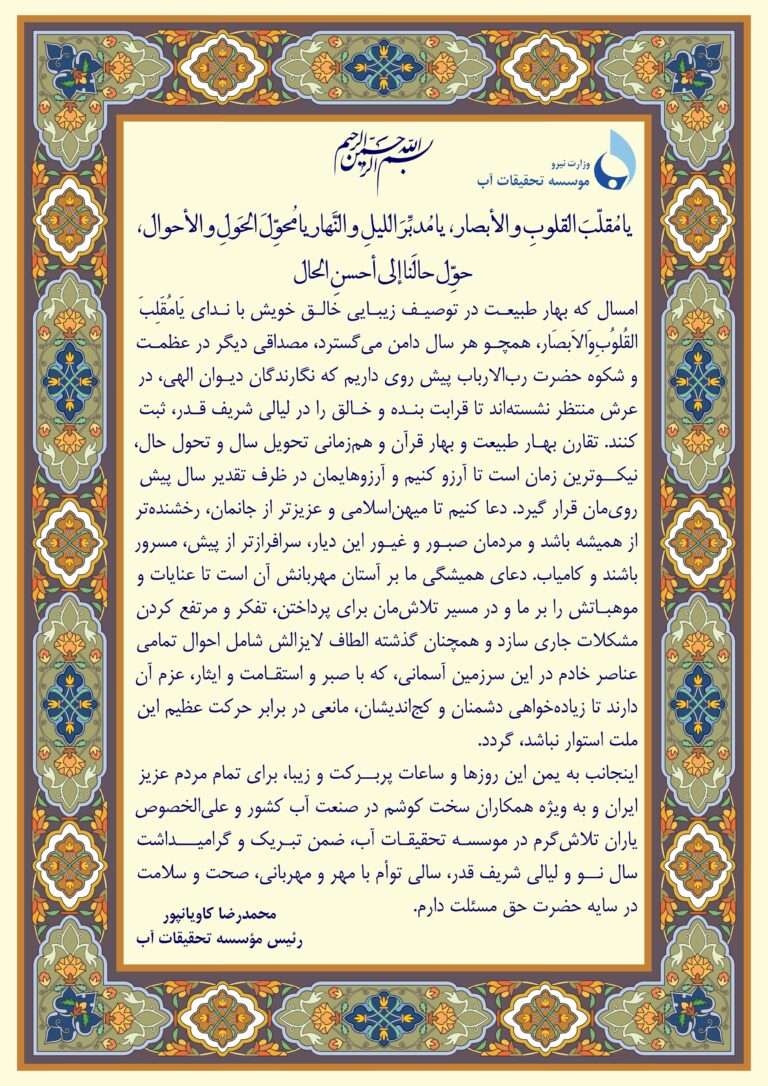 بسم الله الرحمن الرحیم
وزارت نیرو
موسسه تحقیقات آب
یا مُقلّبَ القلوبِ و الأبصار، یا مُدبِّرَ اللیلِ و النَّهار یا مُحوِّلَ الحَولِ و الأحوال،
حوِّل حالَنا إلی أحسنِ الحال
امسال که بهار طبیعت در توصیف زیبایی خالق خویش با ندای یَامُقَلِبَ
القُلوُبِ‌وَالاَبصَار، همچو هر سال دامن می‌گسترد، مصداقی دیگر در عظمت
و شکوه حضرت رب‌الارباب پیش روی داریم که نگارندگان دیوان الهی، در
عرش منتظر نشسته‌اند تا قرابت بنده و خالق را در لیالی شریف قدر، ثبت
کنند. تقارن بهار طبیعت و بهار قرآن و هم‌زمانی تحویل سال و تحول حال،
نیکوترین زمان است تا آرزو کنیم و آرزوهایمان در ظرف تقدیر سال پیش
روی‌مان قرار گیرد. دعا کنیم تا میهن‌اسلامی و عزیزتر از جانمان، رخشنده‌تر
از همیشه باشد و مردمان صبور و غیور این دیار، سرافرازتر از پیش، مسرور
باشند و کامیاب. دعای همیشگی ما بر آستان مهربانش آن است تا عنایات و
موهباتش را بر ما و در مسیر تلاش‌مان برای پرداختن، تفکر و مرتفع کردن
مشکلات جاری سازد و همچنان گذشته الطاف لایزالش شامل احوال تمامی
عناصر خادم در این سرزمین آسمانی، که با صبر و استقامت و ایثار، عزم آن
دارند تا زیاده‌خواهی دشمنان و کج‌اندیشان، مانعی در برابر حرکت عظیم این
ملت استوار نباشد، گردد.
اینجانب به یمن این روزها و ساعات پربرکت و زیبا، برای تمام مردم عزیز
ایران و به ویژه همکاران سخت کوشم در صنعت آب کشور و علی‌الخصوص
یاران تلاش‌گرم در موسسه تحقیقات آب، ضمن تبریک و گرامیداشت
سال نو و لیالی شریف قدر، سالی توأم با مهر و مهربانی، صحت و سلامت
در سایه حضرت حق مسئلت دارم.
محمدرضا کاویانپور
رئیس مؤسسه تحقیقات آب